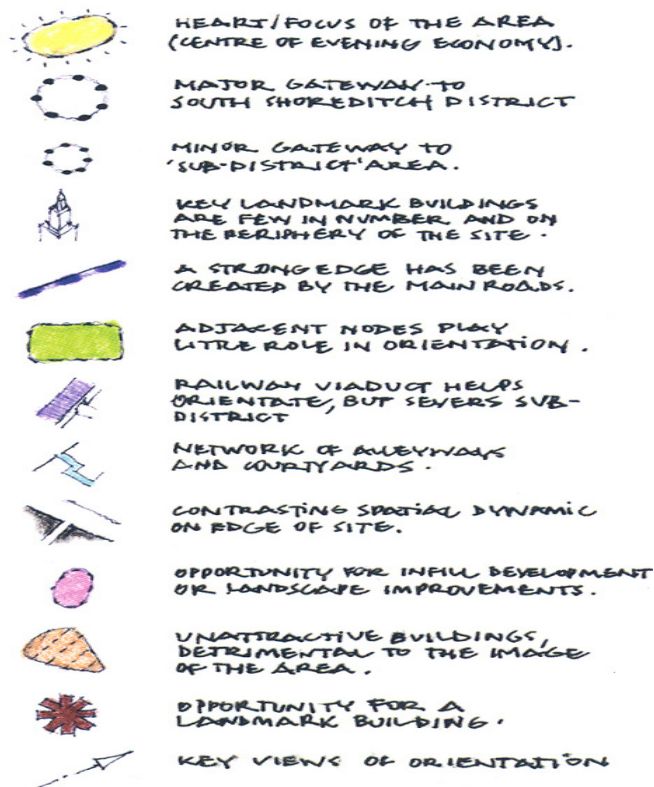 HEART/FOCUS OF THE AREA
(CENTRE OF EVENING ECONOMY).
MAJOR GATEWAY TO
SOUTH SHOREDITCH DISTRICT
MINOR GATEWAY TO
'SUB-DISTRICT' AREA.
KEY LANDMARK BUILDINGS
ARE FEW IN NUMBER AND ON
THE PERIPHERY OF THE SITE.
A STRONG EDGE HAS BEEN
CREATED BY THE MAIN ROADS.
ADJACENT NODES PLAY
LITTLE ROLE IN ORIENTATION.
RAILWAY VIADUCT HELPS
ORIENTATE, BUT SEVERS SUB-
DISTRICT
NETWORK OF ALLEYWAYS
AND COURTYARDS.
CONTRASTING SPATIAL DYNAMIC
ON EDGE OF SITE.
OPPORTUNITY FOR INFILL DEVELOPMENT
OR LANDSCAPE IMPROVEMENTS.
UNATTRACTIVE BUILDINGS,
DETRIMENTAL TO THE IMAGE
OF THE AREA.
OPPORTUNITY FOR A
LANDMARK BUILDING.
KEY VIEWS OF ORIENTATION